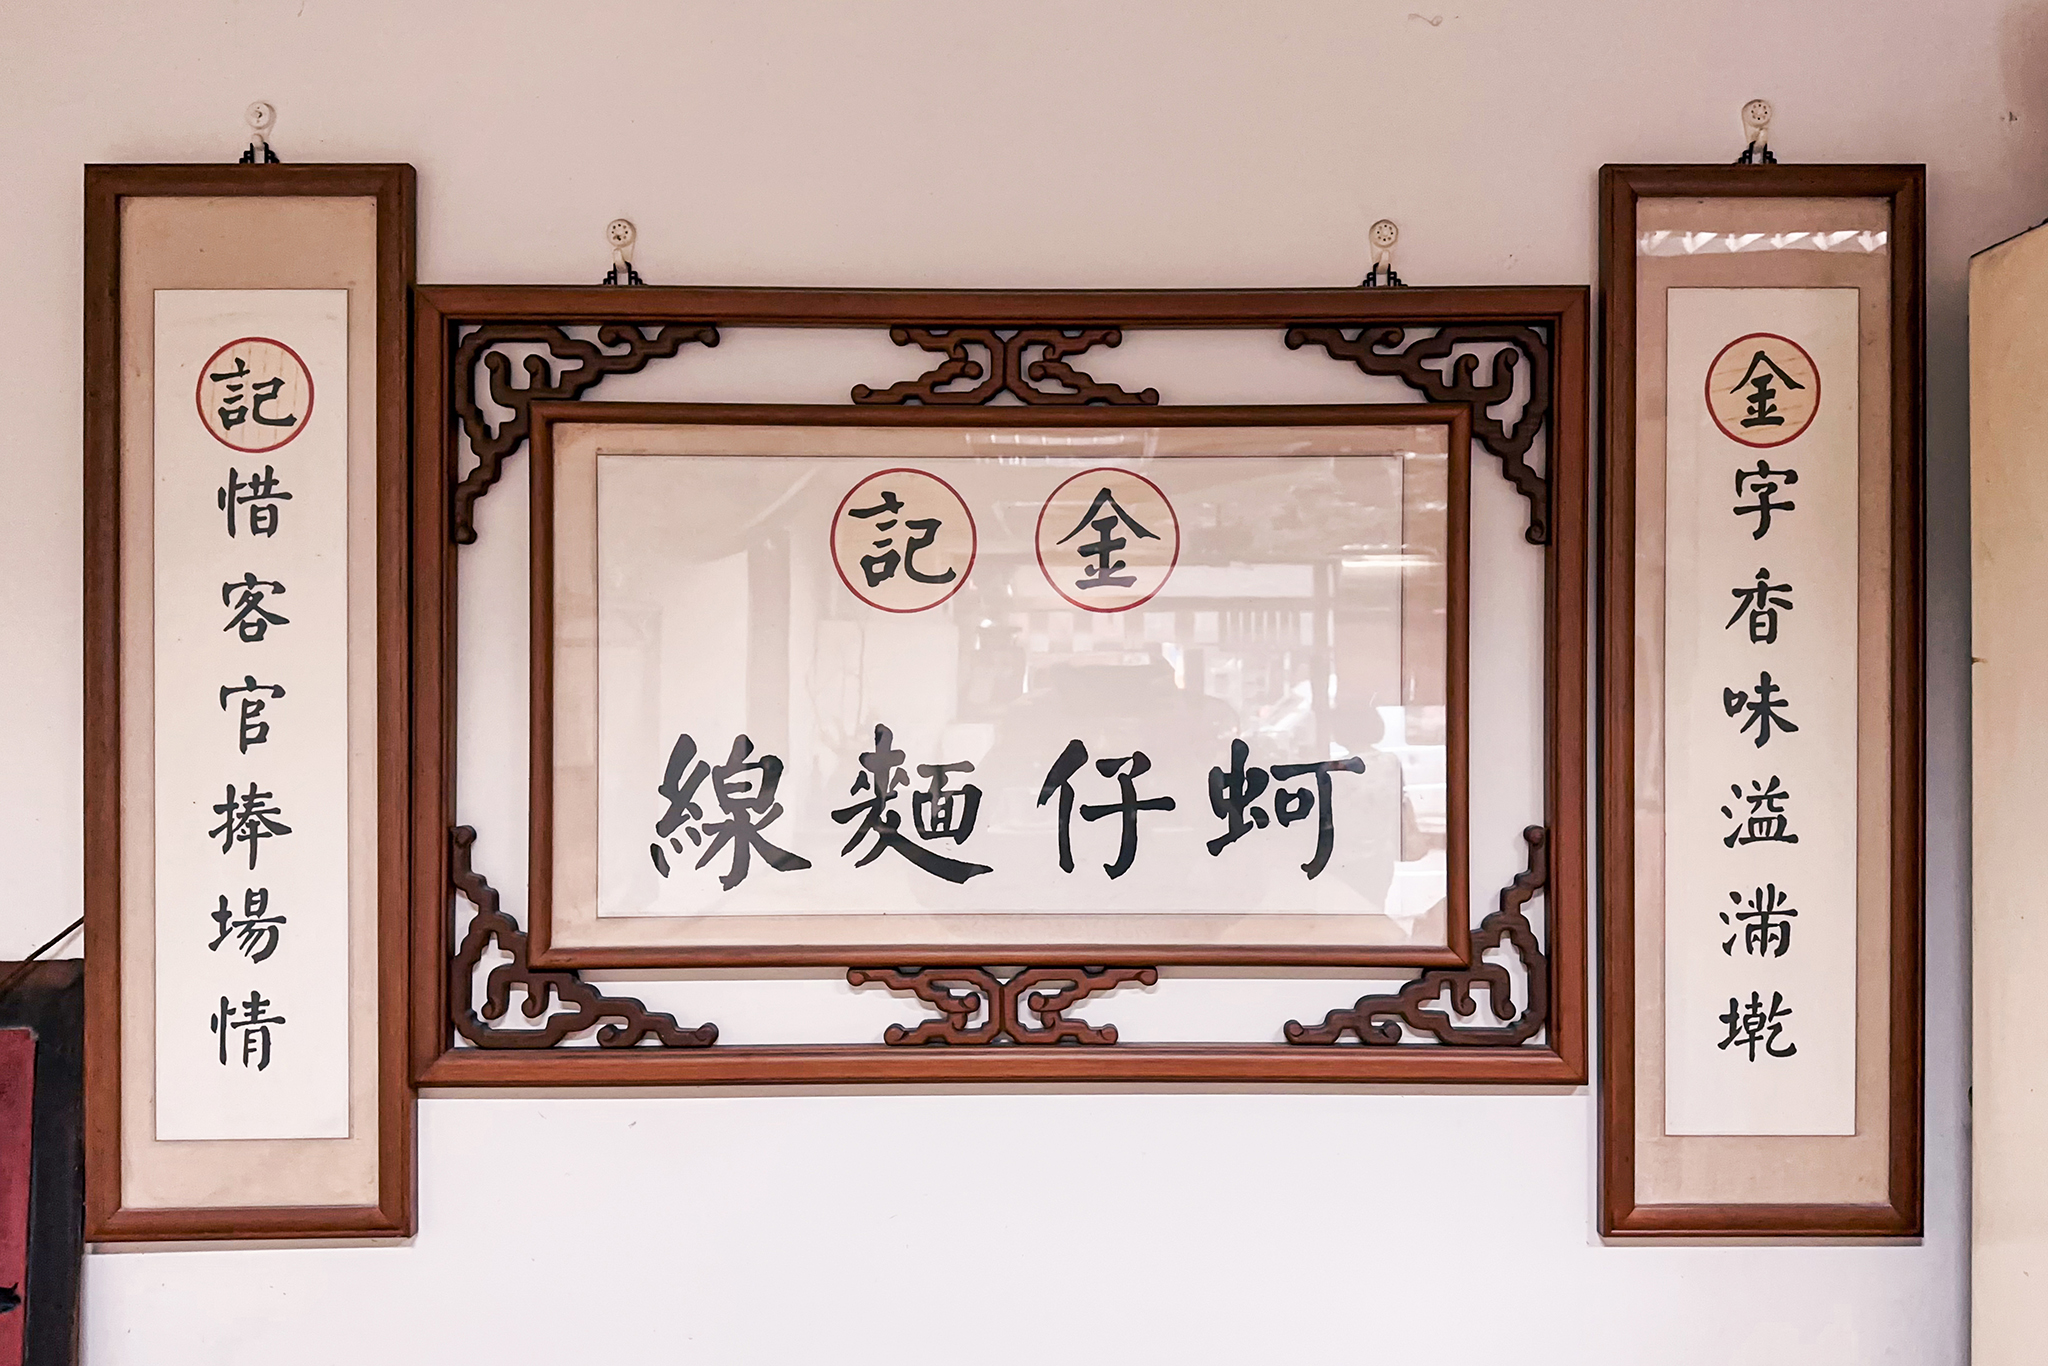 金字香味溢滿墘
金記
蚵仔麵線
記惜客官捧場情